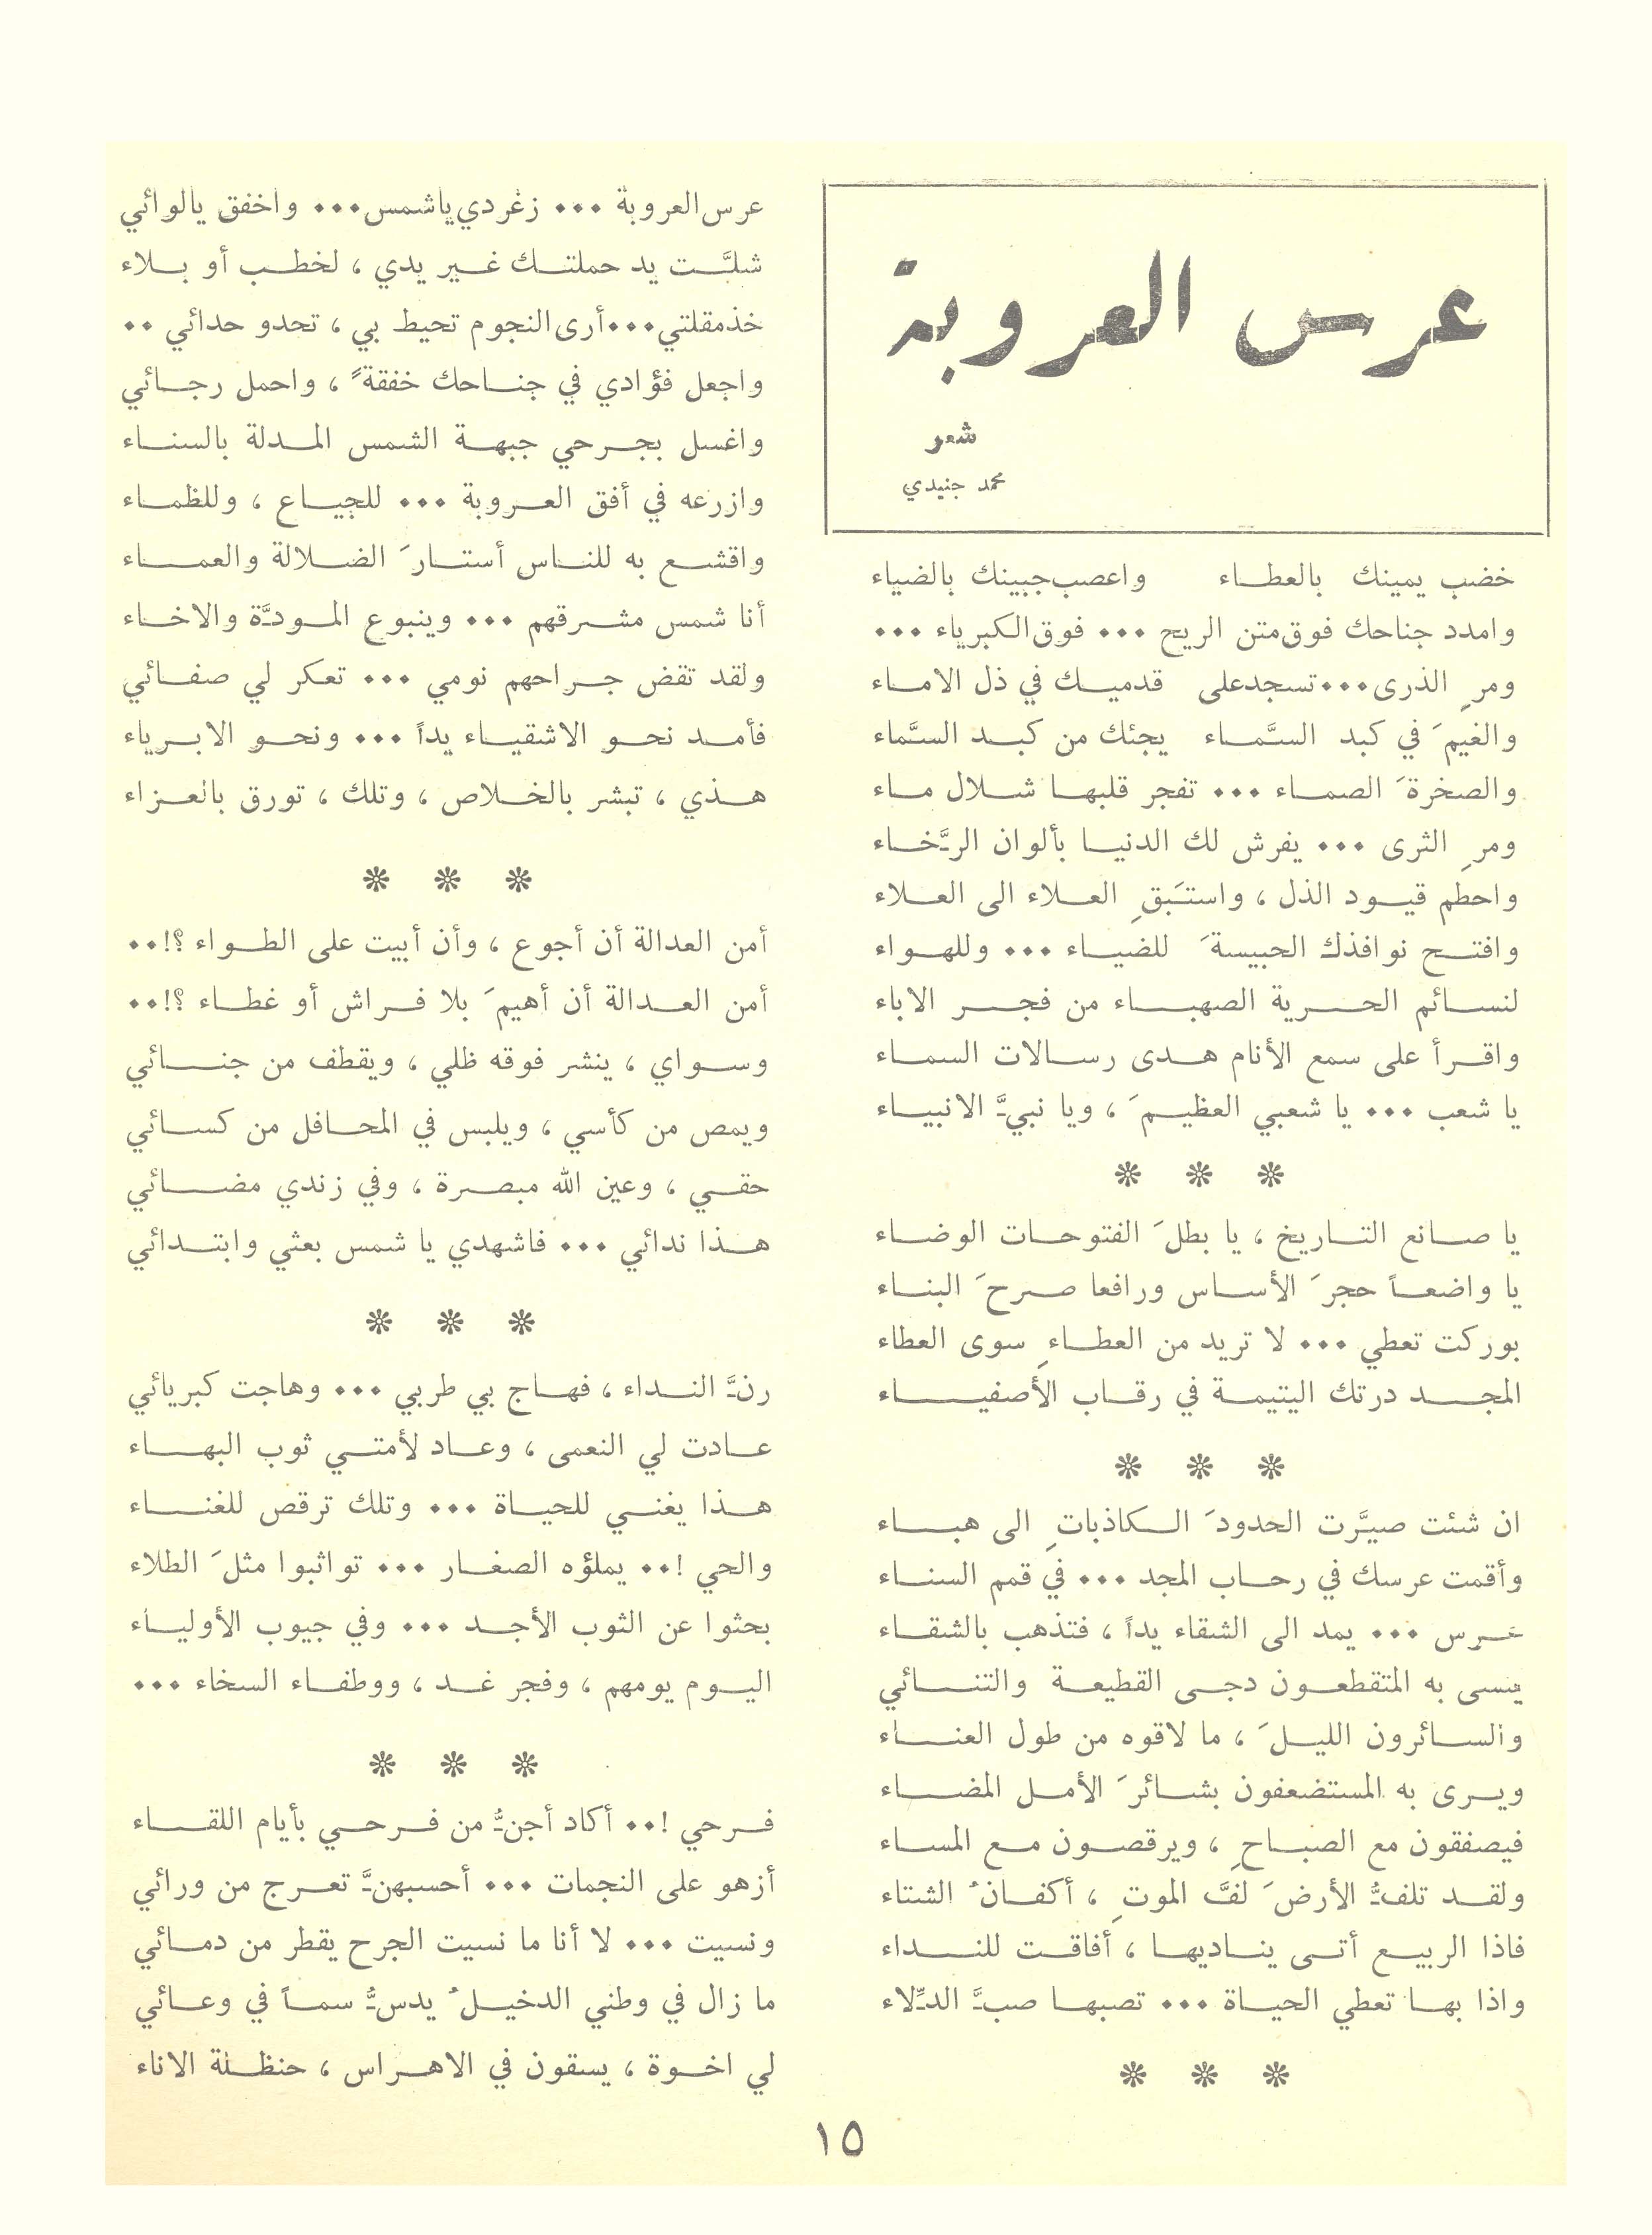 عرس العروبة
شعر
محمد جنيدي
خضب يمينك بالعطـاء واعصب جبينك بالضياء
وامدد جناحك فوق متن الريح ... فوق الكبرياء ...
ومرِ الذرى ... تسجد على قدميـك في ذل الامـاء
والغيمَ في كبد السَّمـاء يجئك من كبـد السَّماء
والصخرةَ الصمـاء ... تفجر قلبهـا شـلال مـاء
ومرِ الثرى ... يفرش لك الدنيـا بألوان الرَّخـاء
واحطم قيـود الذل ، واستَبقِ العـلاء الى العـلاء
وافتـح نوافذك الحبيسةَ للضيـاء ... وللهـواء
لنسـائم الحـرية الصهبـاء من فجـر الاباء
واقـرأ على سمع الأنام هـدى رسـالات السمـاء
يا شعب ... يا شعبي العظيـمَ ، ويا نبيَّ الانبيـاء
* * *
يا صـانع التـاريخ ، يا بطلَ الفتوحـات الوضـاء
يا واضعـاً حجرَ الأسـاس ورافعا صـرحَ البنـاء
بوركت تعطي ... لا تريد من العطـاءِ سوى العطاء
المجـد درتك اليتيمـة في رقـاب الأصفيـاء
* * *
ان شئت صيَّرت الحدودَ الـكاذباتِ الى هبـاء
وأقمت عرسك في رحـاب المجد ... في قمم السنـاء
عـرس ... يمد الى الشقاء يداً ، فتذهب بالشقـاء
ينسى به المتقطعـون دجـى القطيعـة والتنـائي
والسـائرون الليـلَ ، ما لاقوه من طول العنـاء
ويـرى به المستضعفون بشـائرَ الأمـل المضـاء
فيصفقون مع الصبـاحِ ، ويرقصـون مـع المسـاء
ولقـد تلفُّ الأرضَ لفَّ الموتِ ، أكفـانُ الشتاء
فاذا الربيـع أتـى ينـاديهـا ، أفاقـت للنـداء
واذا بهـا تعطي الحيـاة ... تصبهـا صبَّ الدِّلاء
* * *
عرس العروبة ... زغردي ياشمس ... واخفق يالوائي
شلَّـت يد حملتـك غـير يدي ، لخطـب أو بـلاء
خذ مقلتي ... أرى النجوم تحيط بي ، تحدو حدائي ..
واجعل فؤادي في جنـاحك خفقةً ، واحمل رجـائي
واغسل بجـرحي جبهـة الشمس المـدلة بالسنـاء
وازرعه في أفق العـروبة ... للجيـاع ، وللظمـاء
واقشـع به للنـاس أستـارَ الضـلالة والعمـاء
أنا شمس مشـرقهم ... وينبوع المـودَّة والاخـاء
ولقد تقض جـراحهم نومي ... تعكر لي صفـائي
فأمـد نحـو الاشقيـاء يداً ... ونحـو الابـرياء
هـذي ، تبشر بالخـلاص ، وتلك ، تورق بالعـزاء
* * *
أمن العدالة أن أجوع ، وأن أبيت على الطـواء ؟!..
أمن العـدالة أن أهيمَ بلا فـراش أو غطـاء ؟!..
وسـواي ، ينشر فوقه ظلي ، ويقطف من جنـائي
ويمص من كأسي ، ويلبس في المحـافل من كسـائي
حقـي ، وعين الله مبصـرة ، وفي زندي مضـائي
هـذا ندائي ... فاشهدي يا شمس بعثي وابتـدائي
* * *
رنَّ النـداء ، فهـاج بي طربي ... وهاجت كبريائي
عـادت لي النعمى ، وعـاد لأمتـي ثوب البهـاء
هـذا يغنـي للحيـاة ... وتلك ترقص للغنـاء
والحي !.. يملؤه الصغـار ... تواثبوا مثلَ الطلاء
بحثوا عن الثوب الأجـد ... وفي جيوب الأوليـاء
اليـوم يومهم ، وفجر غـد ، ووطفـاء السخاء ...
* * *
فـرحي !.. أكاد أجنُّ من فـرحـي بأيام اللقـاء
أزهو على النجمات ... أحسبهنَّ تعـرج من ورائي
ونسيت ... لا أنا ما نسيت الجرح يقطر من دمـائي
ما زال في وطني الدخيـلُ يدسُّ سمـاً في وعـائي
لي اخـوة ، يسقون في الاهـراس ، حنظـلة الاناء
١٥